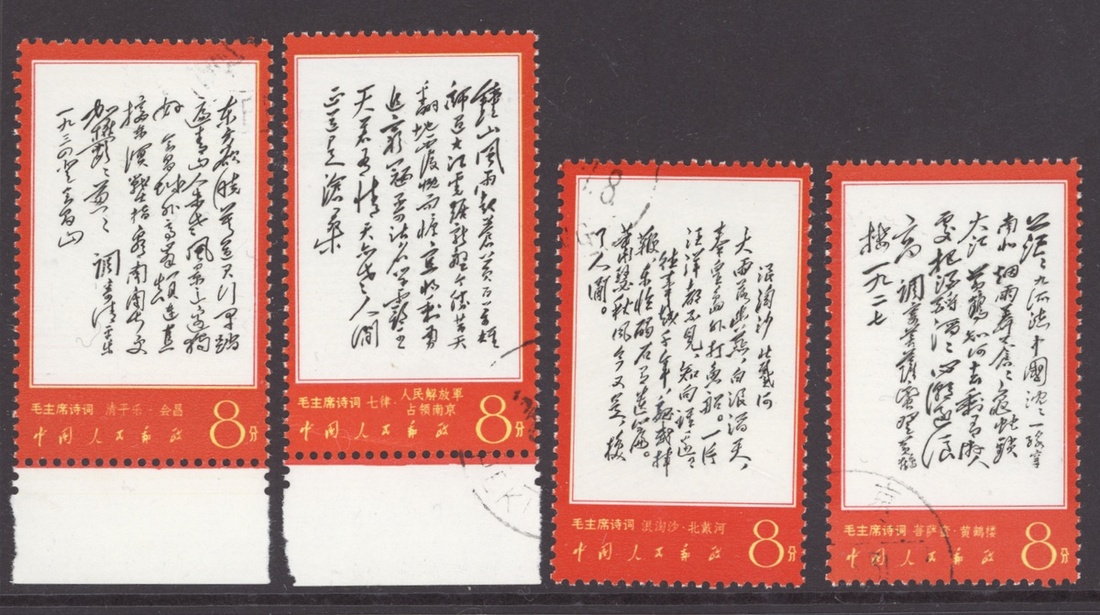 东方欲晓莫道君行早踏
遍青山人未老风景这边独
好 会昌城外高峰颠连直
接东溟战士指看南国更
加郁郁葱葱 调寄清平乐
一九三四登会昌山
毛主席诗词 清平乐·会昌
中国人民邮政 8分
鐘山风雨起苍黄百万雄
师过大江虎踞龙盘今胜昔天
翻地覆慨而慷宜将剩勇
追穷寇不可沽名学霸王
天若有情天亦老人间
正道是沧桑
毛主席诗词 七律·人民解放軍
占领南京
中国人民邮政 8分
浪淘沙 北戴河
大雨落幽燕，白浪滔天，
秦皇岛外打鱼船。一片
汪洋都不见，知向谁边？
往事越千年，魏武挥
鞭，东临碣石有遗篇。
萧瑟秋风今又是，换
了人间。
毛主席诗词 浪淘沙·北戴河
中国人民邮政 8分
茫茫九派流中國沉沉一线穿
南北烟雨莽苍苍龟蛇锁
大江 黄鹤知何去剩有游人
处把酒酹滔滔心潮逐浪
高 调寄菩萨蛮登黄鹤
楼一九二七
毛主席诗词 菩萨蛮·黄鹤楼
中国人民邮政 8分
8
PEK
京